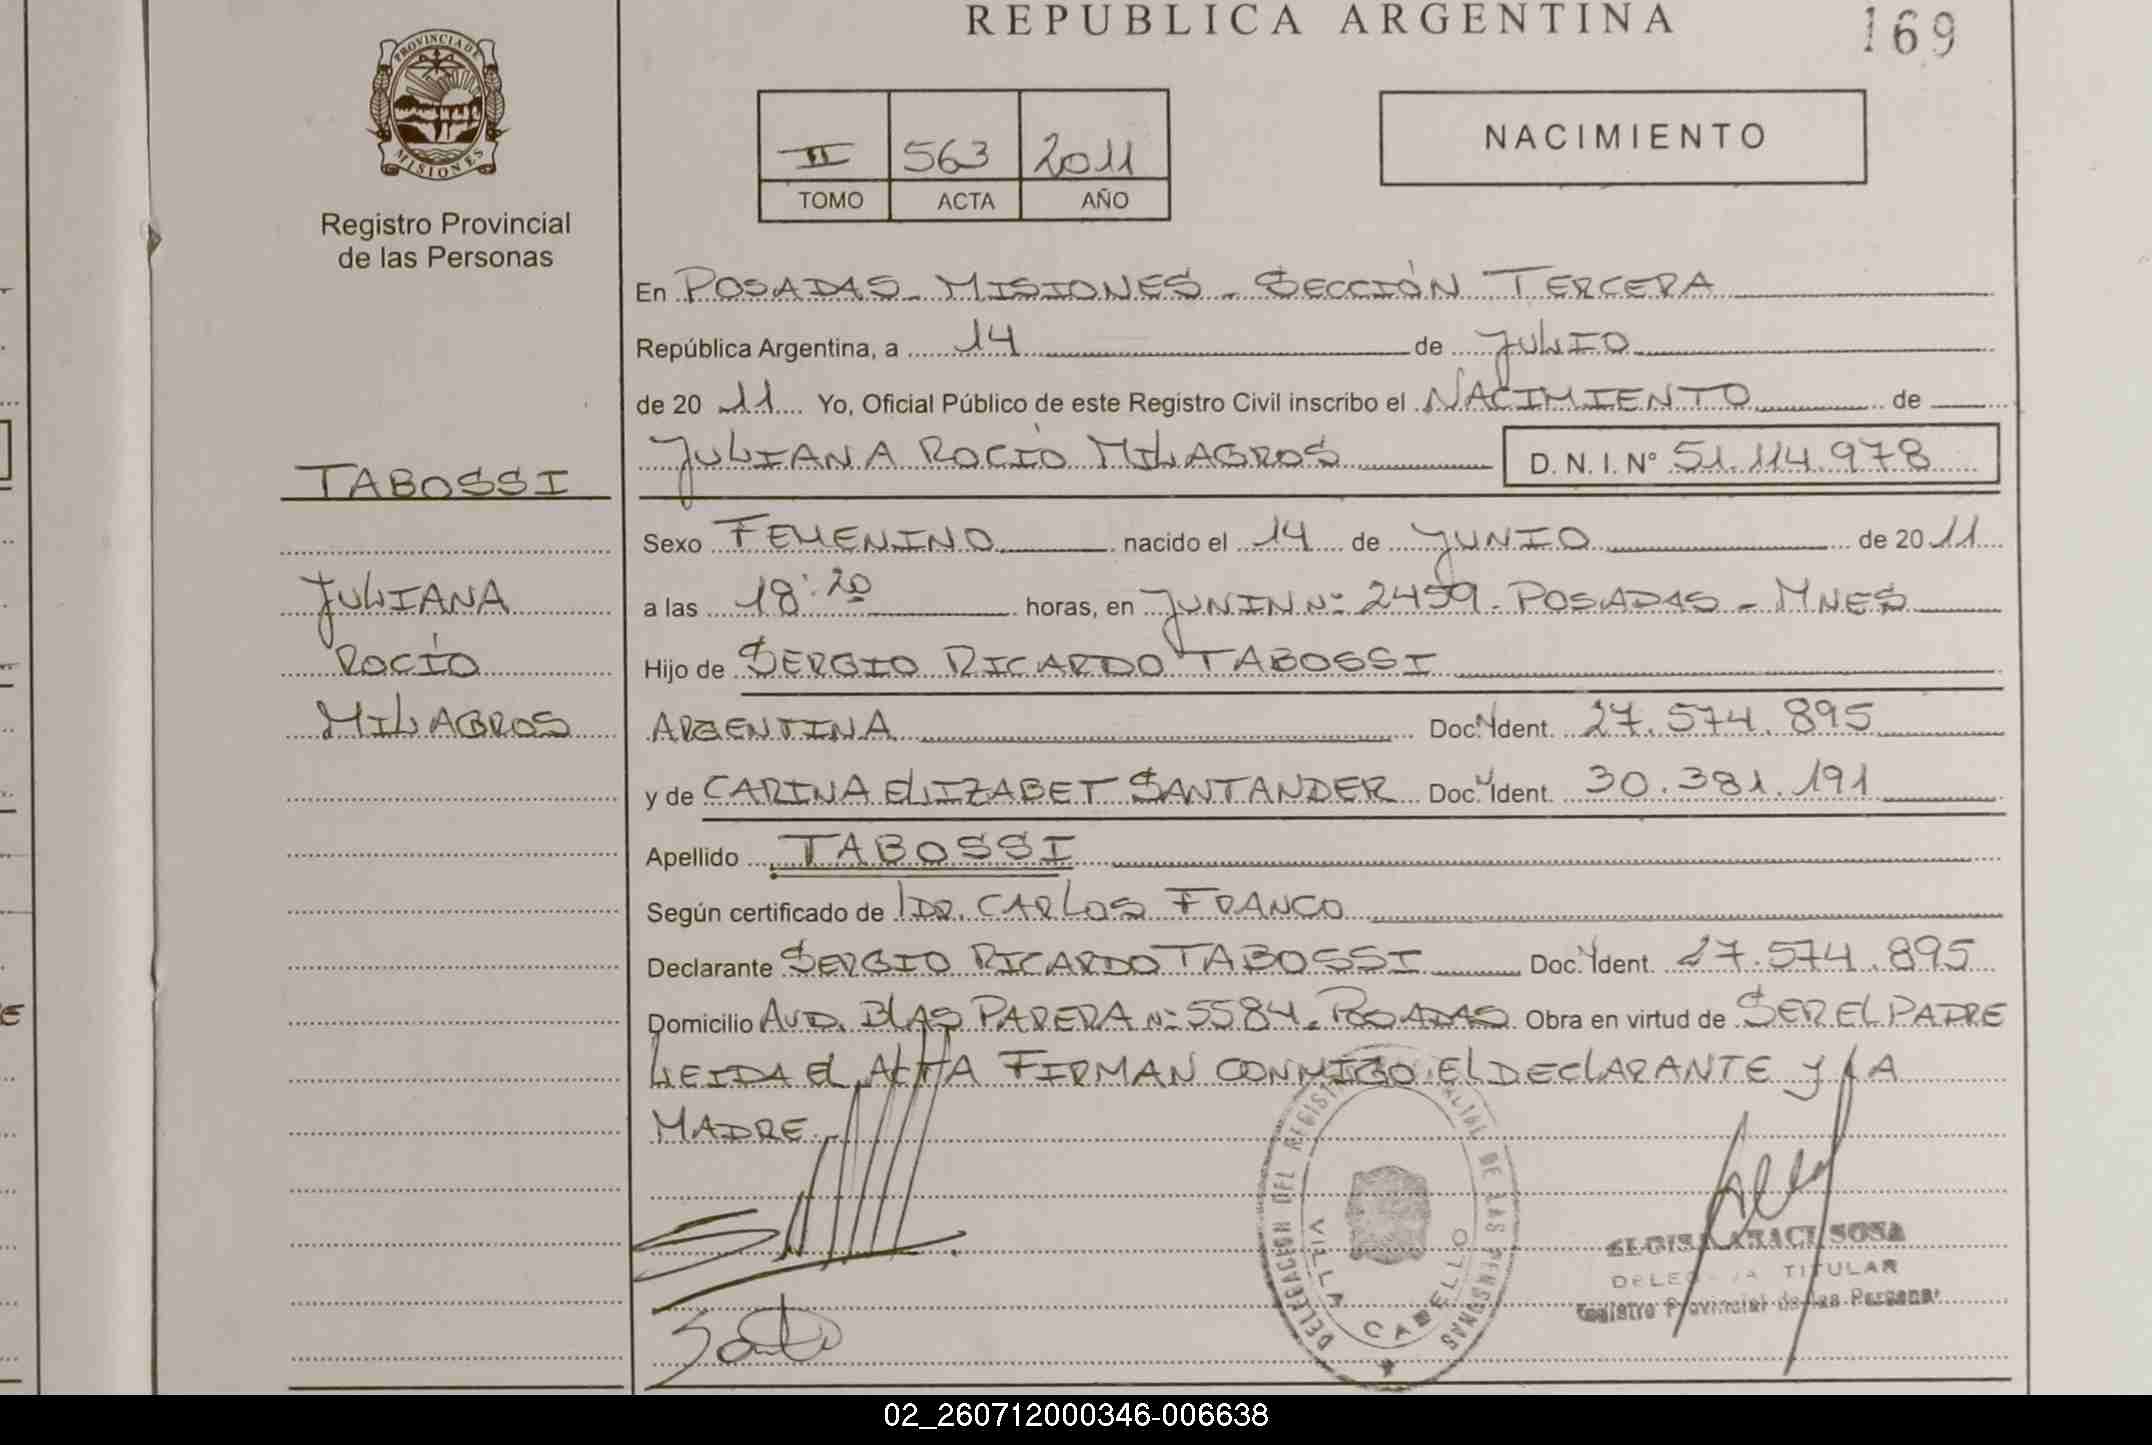 REPUBLICA ARGENTINA
169
PROVINCIA DE
MISIONES
Registro Provincial
de las Personas
II 563 2011
TOMO ACTA AÑO
NACIMIENTO
En POSADAS - MISIONES - SECCIÓN TERCERA
República Argentina, a 14 de JULIO
de 20 11 Yo, Oficial Público de este Registro Civil inscribo el NACIMIENTO de
JULIANA ROCÍO MILAGROS D. N. I. Nº 51.114.978
TABOSSI
JULIANA
ROCÍO
MILAGROS
Sexo FEMENINO nacido el 14 de JUNIO de 20 11
a las 18:20 horas, en JUNIN Nº 2459 - POSADAS - MNES
Hijo de SERGIO RICARDO TABOSSI
ARGENTINA Doc. Ident. 27.574.895
y de CARINA ELIZABET SANTANDER Doc. Ident. 30.381.191
Apellido TABOSSI
Según certificado de DR. CARLOS FRANCO
Declarante SERGIO RICARDO TABOSSI Doc. Ident. 27.574.895
Domicilio AVD. BLAS PARERA Nº 5584. POSADAS Obra en virtud de SER EL PADRE
LEIDA EL ACTA FIRMAN CONMIGO EL DECLARANTE Y LA
MADRE
DELEGACION DEL REGISTRO DE LAS PERSONAS
VILLA CABELLO
SOSA
TITULAR
Registro Provincial de las Personas
02_260712000346-006638